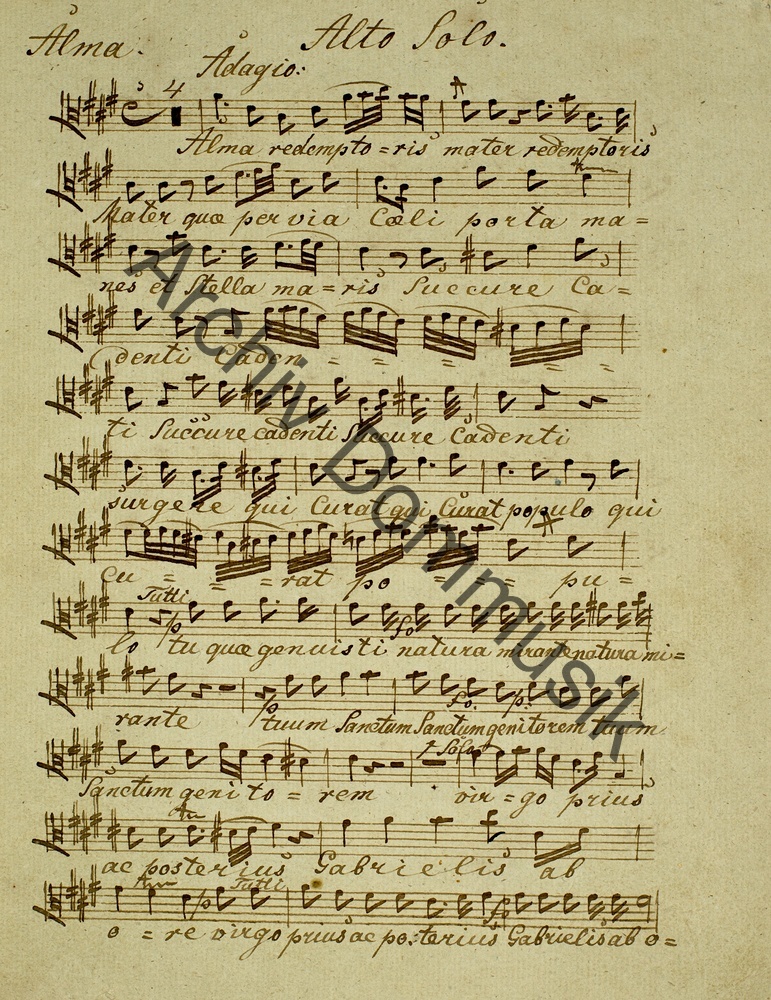 Alma. Alto Solo.
Adagio:
4
Alma redempto = ris mater redemptoris
Mater quæ per via Cœli porta ma =
nes et Stella ma = ris Succure Ca =
denti Caden = = = =
ti Succure cadenti Succure Cadenti
surgere qui Curat qui Curat populo qui
Cu = = = rat po = = = pu =
Tutti
lo tu quæ genuisti natura mirante natura mi =
rante tuum Sanctum Sanctum genitorem tuum
Solo
Sanctum geni to = rem vir = go prius
ac posterius Gabrielis ab
Tutti
o = re virgo prius ac posterius Gabrielis ab o =
Archiv Dommusik